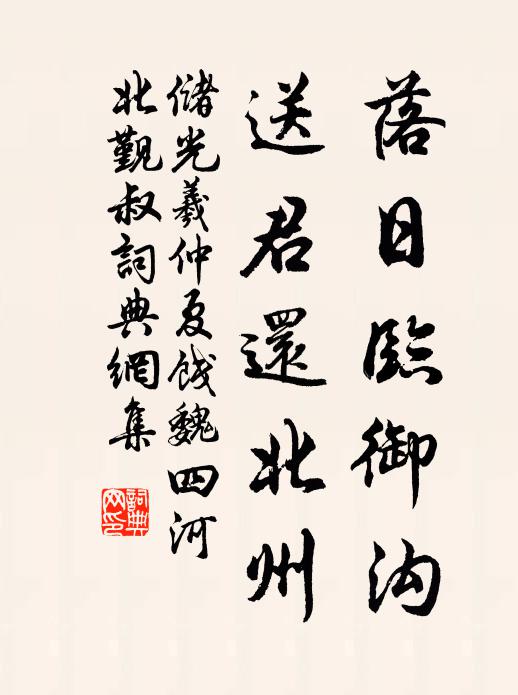 落日臨御沟
送君還北州
儲光羲仲夏餞魏四河
北覲叔詞典網集
詞典网印